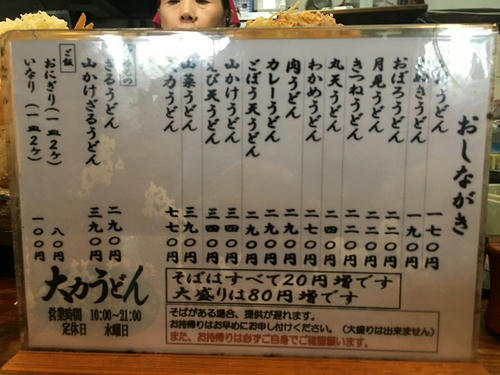 おしながき
うどん 一七〇円
うどん 一九〇円
おぼろうどん 二二〇円
月見うどん 二二〇円
きつねうどん 二二〇円
丸天うどん 二四〇円
わかめうどん 二七〇円
肉うどん 二九〇円
カレーうどん 二九〇円
ごぼう天うどん 二九〇円
山かけうどん 三四〇円
えび天うどん 三四〇円
山菜うどん 三九〇円
力うどん 七七〇円
ざるうどん 二九〇円
山かけざるうどん 三九〇円
ご飯
おにぎり(一皿2ケ) 八〇円
いなり(一皿2ケ) 一〇〇円
そばはすべて20円増です
大盛りは80円増です
そばがある場合、提供が遅れます。
お持帰りはお早めにお申し付けください。(大盛りは出来ません)
また、お持帰りは必ずご自身でご確認願います。
大力うどん
営業時間 10:00~21:00
定休日 水曜日